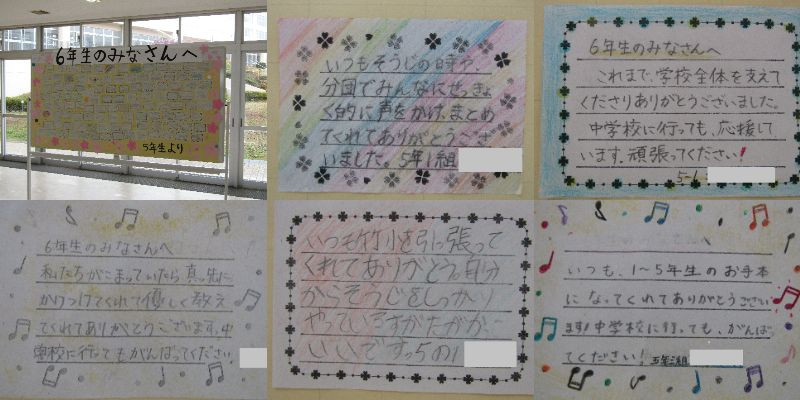 6年生のみなさんへ
5年生より
いつもそうじの時や、
分団でみんなにせっきょ
く的に声をかけ、まとめ
てくれてありがとうござ
いました。5年1組
6年生のみなさんへ
これまで、学校全体を支えて
くださりありがとうございました。
中学校に行っても、応援して
います。頑張ってください!
5-1
6年生のみなさんへ
私たちがこまっていたら真っ先に
かけつけてくれて優しく教え
てくれてありがとうございます。中
学校に行ってもがんばってください。
いつも竹小を引っ張って
くれてありがとう。自分
からそうじをしっかり
やっていてすがたがかっこ
いいです。5の1
いつも、1~5年生のお手本
になってくれてありがとうござい
ます!中学校に行っても、がんばっ
てください! 五年3組